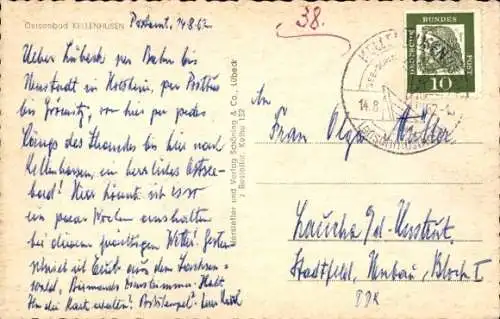 Ostseebad KELLENHUSEN
Postamt, 14.8.62
38.
Ueber Lübeck per Bahn bis
Neustadt in Holstein, per Postbus
bis Grömitz, von hier per pedes
längs des Strandes bis hier nach
Kellenhusen, ein herrliches Ostsee-
bad! Hier könnt ich es
ein paar Wochen aushalten
bei diesem Wetter! Gestern
schrieb ich Euch aus dem Sachsen-
wald, Bismarcks
die Karte erhalten? Poststempel! Euer
Hersteller und Verlag Schöning & Co., Lübeck
Bestellnr. Kelhu 152
DEUTSCHE
BUNDES
POST
10
KELLENHUSEN
14.8.
An
Frau Olga Müller
Laucha a/d. Unstrut
Stadtfeld, Neubau, Block I
DDR